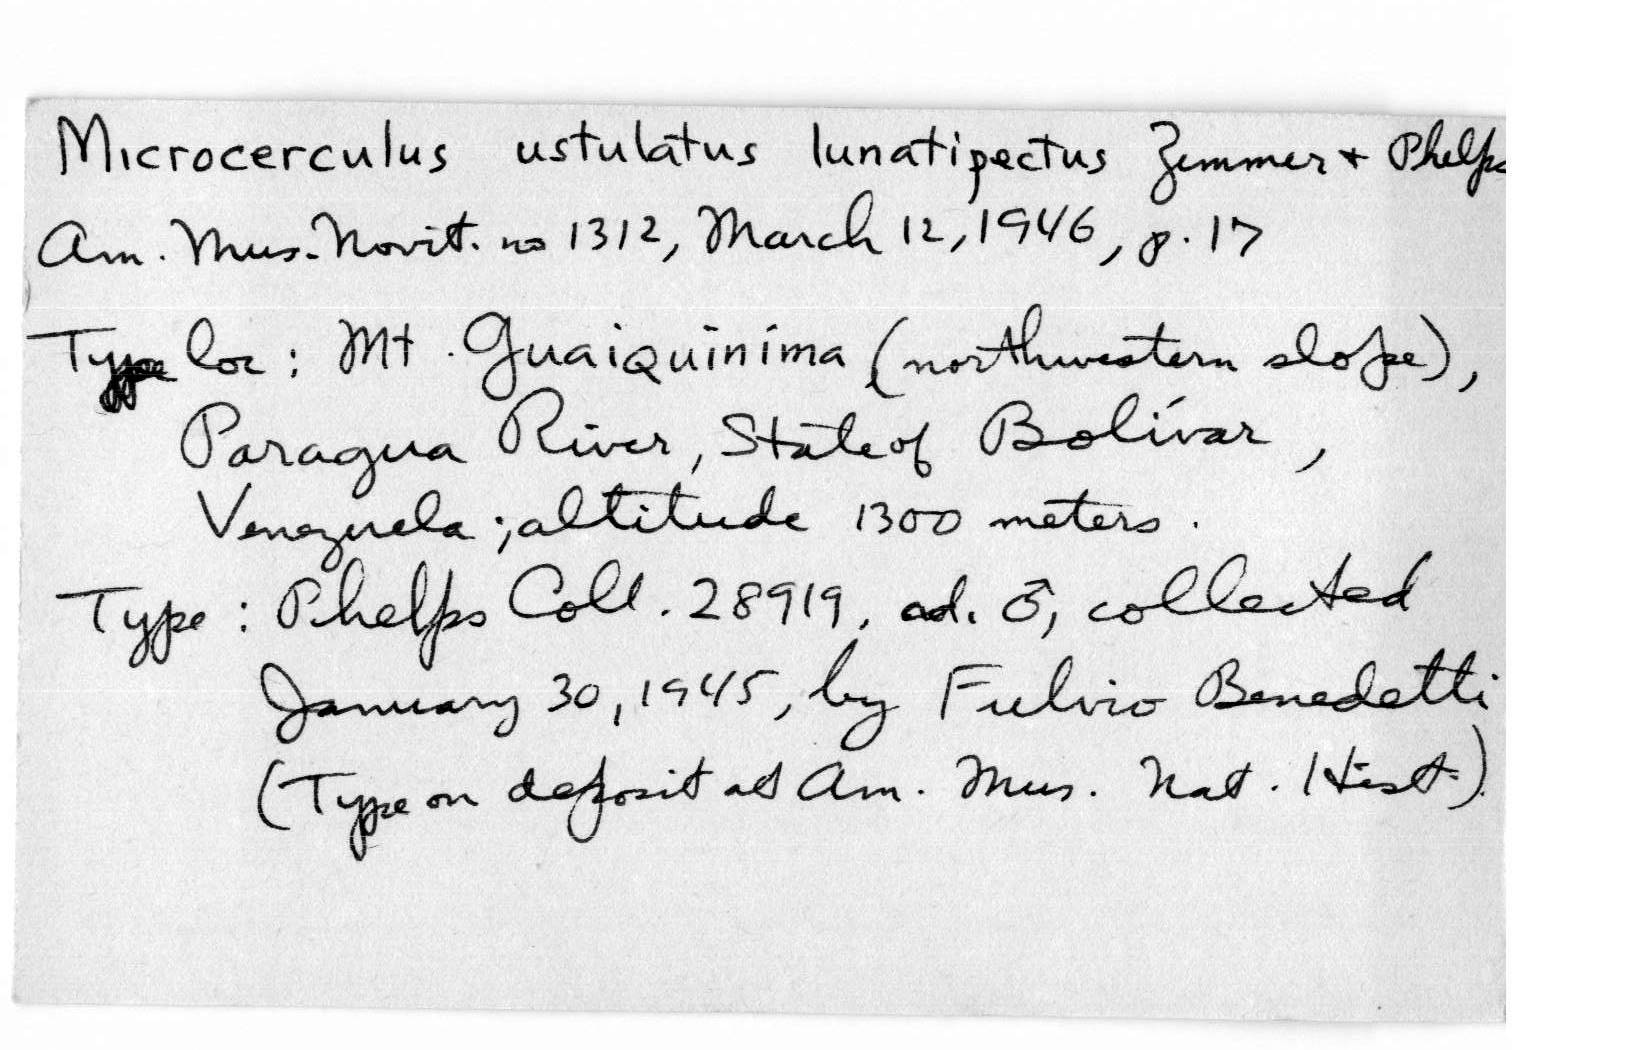 Microcerculus ustulatus lunatipectus Zimmer + Phelps
Am. Mus. Novit. no 1312, March 12, 1946, p. 17
Type loc: Mt. Guaiquinima (northwestern slope),
Paragua River, State of Bolívar,
Venezuela; altitude 1300 meters.
Type: Phelps Coll. 28919, ad. ♂, collected
January 30, 1945, by Fulvio Benedetti
(Type on deposit at Am. Mus. Nat. Hist.)